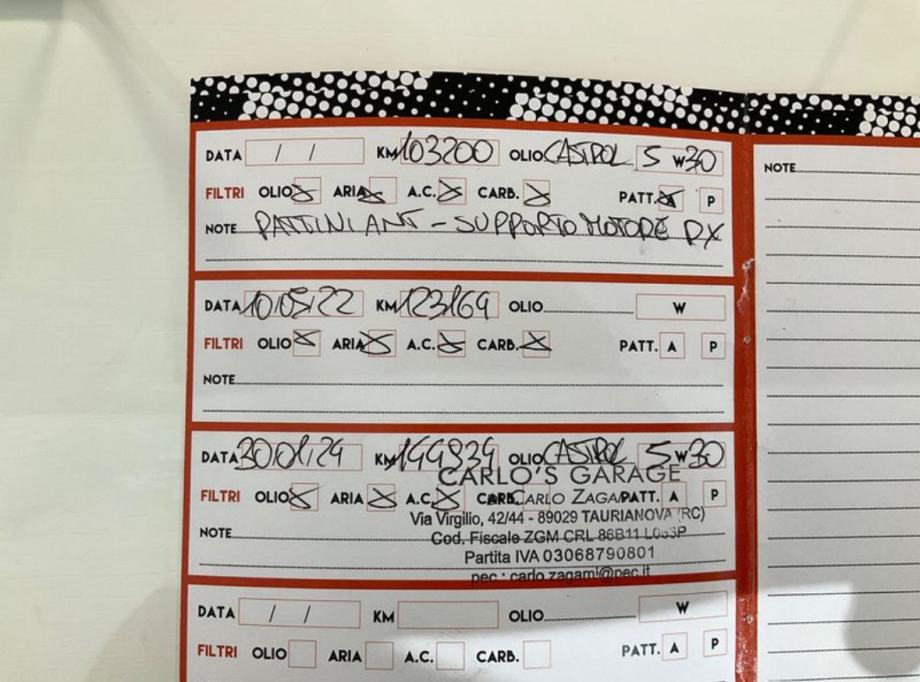 DATA / / KM 103200 OLIO CASTROL 5 W 30
FILTRI OLIO ARIA A.C. CARB. PATT. A P
NOTE PATTINI ANT - SUPPORTO MOTORE DX
DATA 10/05/22 KM 123169 OLIO W
FILTRI OLIO ARIA A.C. CARB. PATT. A P
NOTE
DATA 30/01/24 KM 144934 OLIO CASTROL 5 W 30
CARLO'S GARAGE
FILTRI OLIO ARIA A.C. CARB. PATT. A P
CARLO ZAGAMI
Via Virgilio, 42/44 - 89029 TAURIANOVA (RC)
NOTE
Cod. Fiscale ZGM CRL 86B11
Partita IVA 03068790801
pec : carlo.zagami@pec.it
DATA / / KM OLIO W
FILTRI OLIO ARIA A.C. CARB. PATT. A P
NOTE